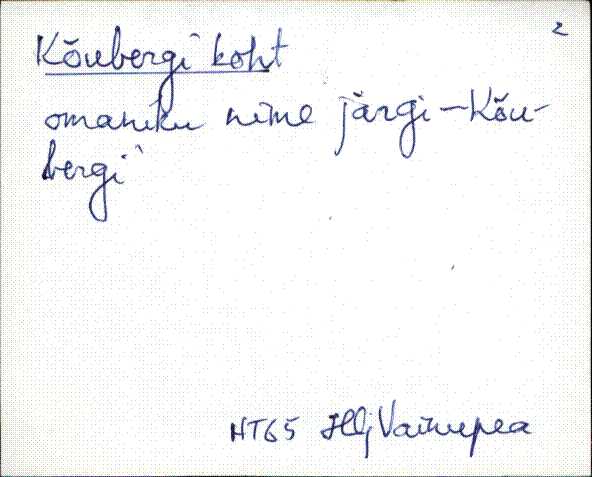 2
Kõubergi koht
omaniku nime järgi – Kõu-
bergi
HT65 Hlj Vainupea